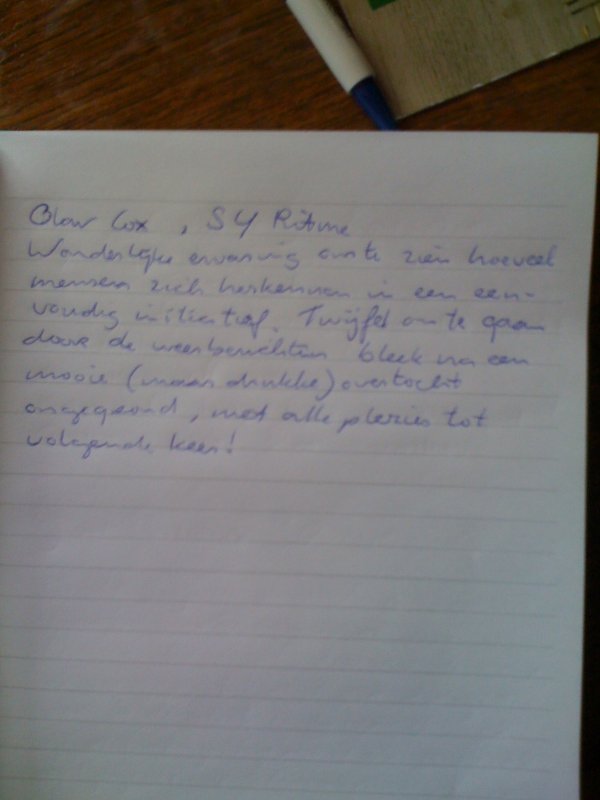 Olav Cox, SY Ritme
Wonderlijke ervaring om te zien hoeveel
mensen zich herkennen in een een-
voudig initiatief. Twijfel om te gaan
door de weerberichten bleek na een
mooie (maar drukke) overtocht
ongegrond, met alle plezier tot
volgende keer!